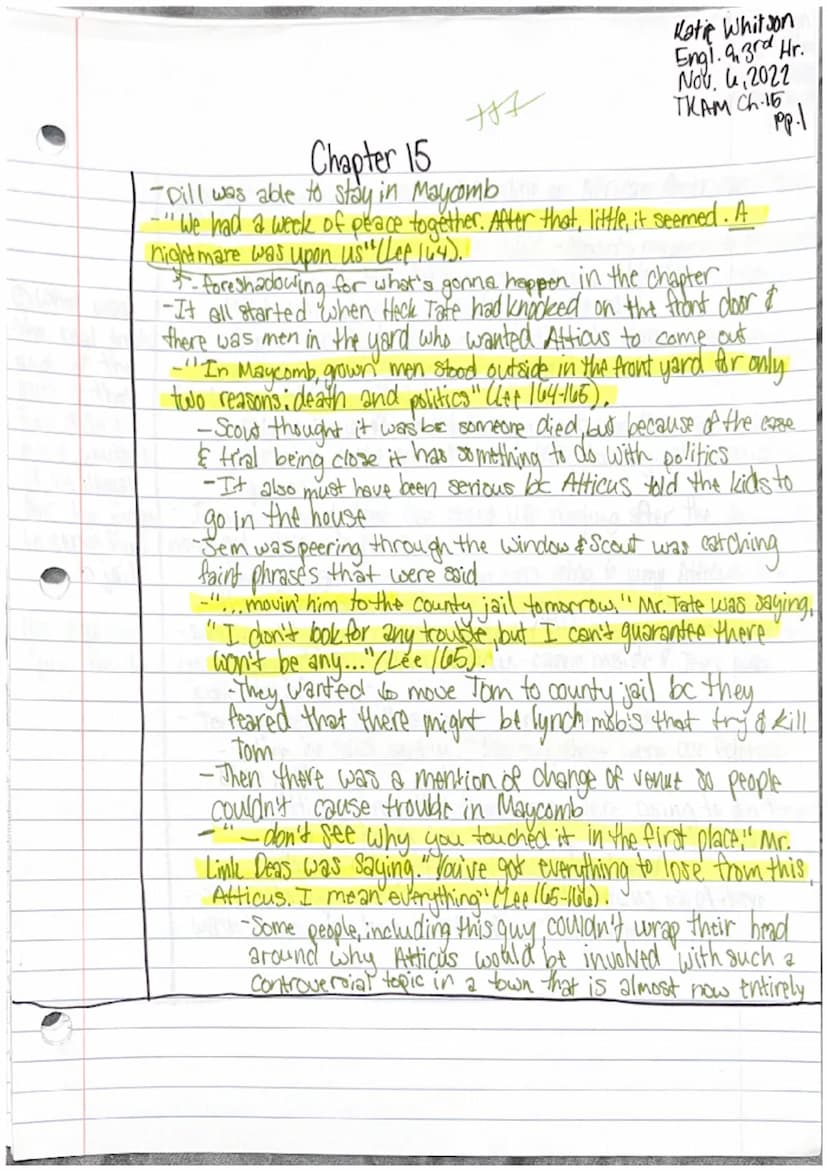 Katie Whitson
Engl. 9, 3rd Hr.
Nov. 6, 2022
TKAM Ch. 15
pp. 1
Chapter 15
- Dill was able to stay in Maycomb
- "We had a week of peace together. After that, little, it seemed. A
nightmare was upon us" (Lee 164).
- foreshadowing for what's gonna happen in the chapter
- It all started when Heck Tate had knocked on the front door &
there was men in the yard who wanted Atticus to come out
- "In Maycomb, grown men stood outside in the front yard for only
two reasons: death and politics" (Lee 164-165).
- Scout thought it was bc someone died, but because of the case
& trial being close it has something to do with politics
- It also must have been serious bc Atticus told the kids to
go in the house
- Jem was peering through the window & Scout was catching
faint phrases that were said
- "...movin' him to the county jail tomorrow," Mr. Tate was saying,
"I don't look for any trouble, but I can't guarantee there
won't be any..." (Lee 165).
- They wanted to move Tom to county jail bc they
feared that there might be lynch mob's that try & kill
Tom
- Then there was a mention of change of venue so people
couldn't cause trouble in Maycomb
- "—don't see why you touched it in the first place," Mr.
Link Deas was saying. "You've got everything to lose from this,
Atticus. I mean everything" (Lee 165-166).
- Some people, including this guy, couldn't wrap their head
around why Atticus would be involved with such a
controversial topic in a town that is almost now entirely